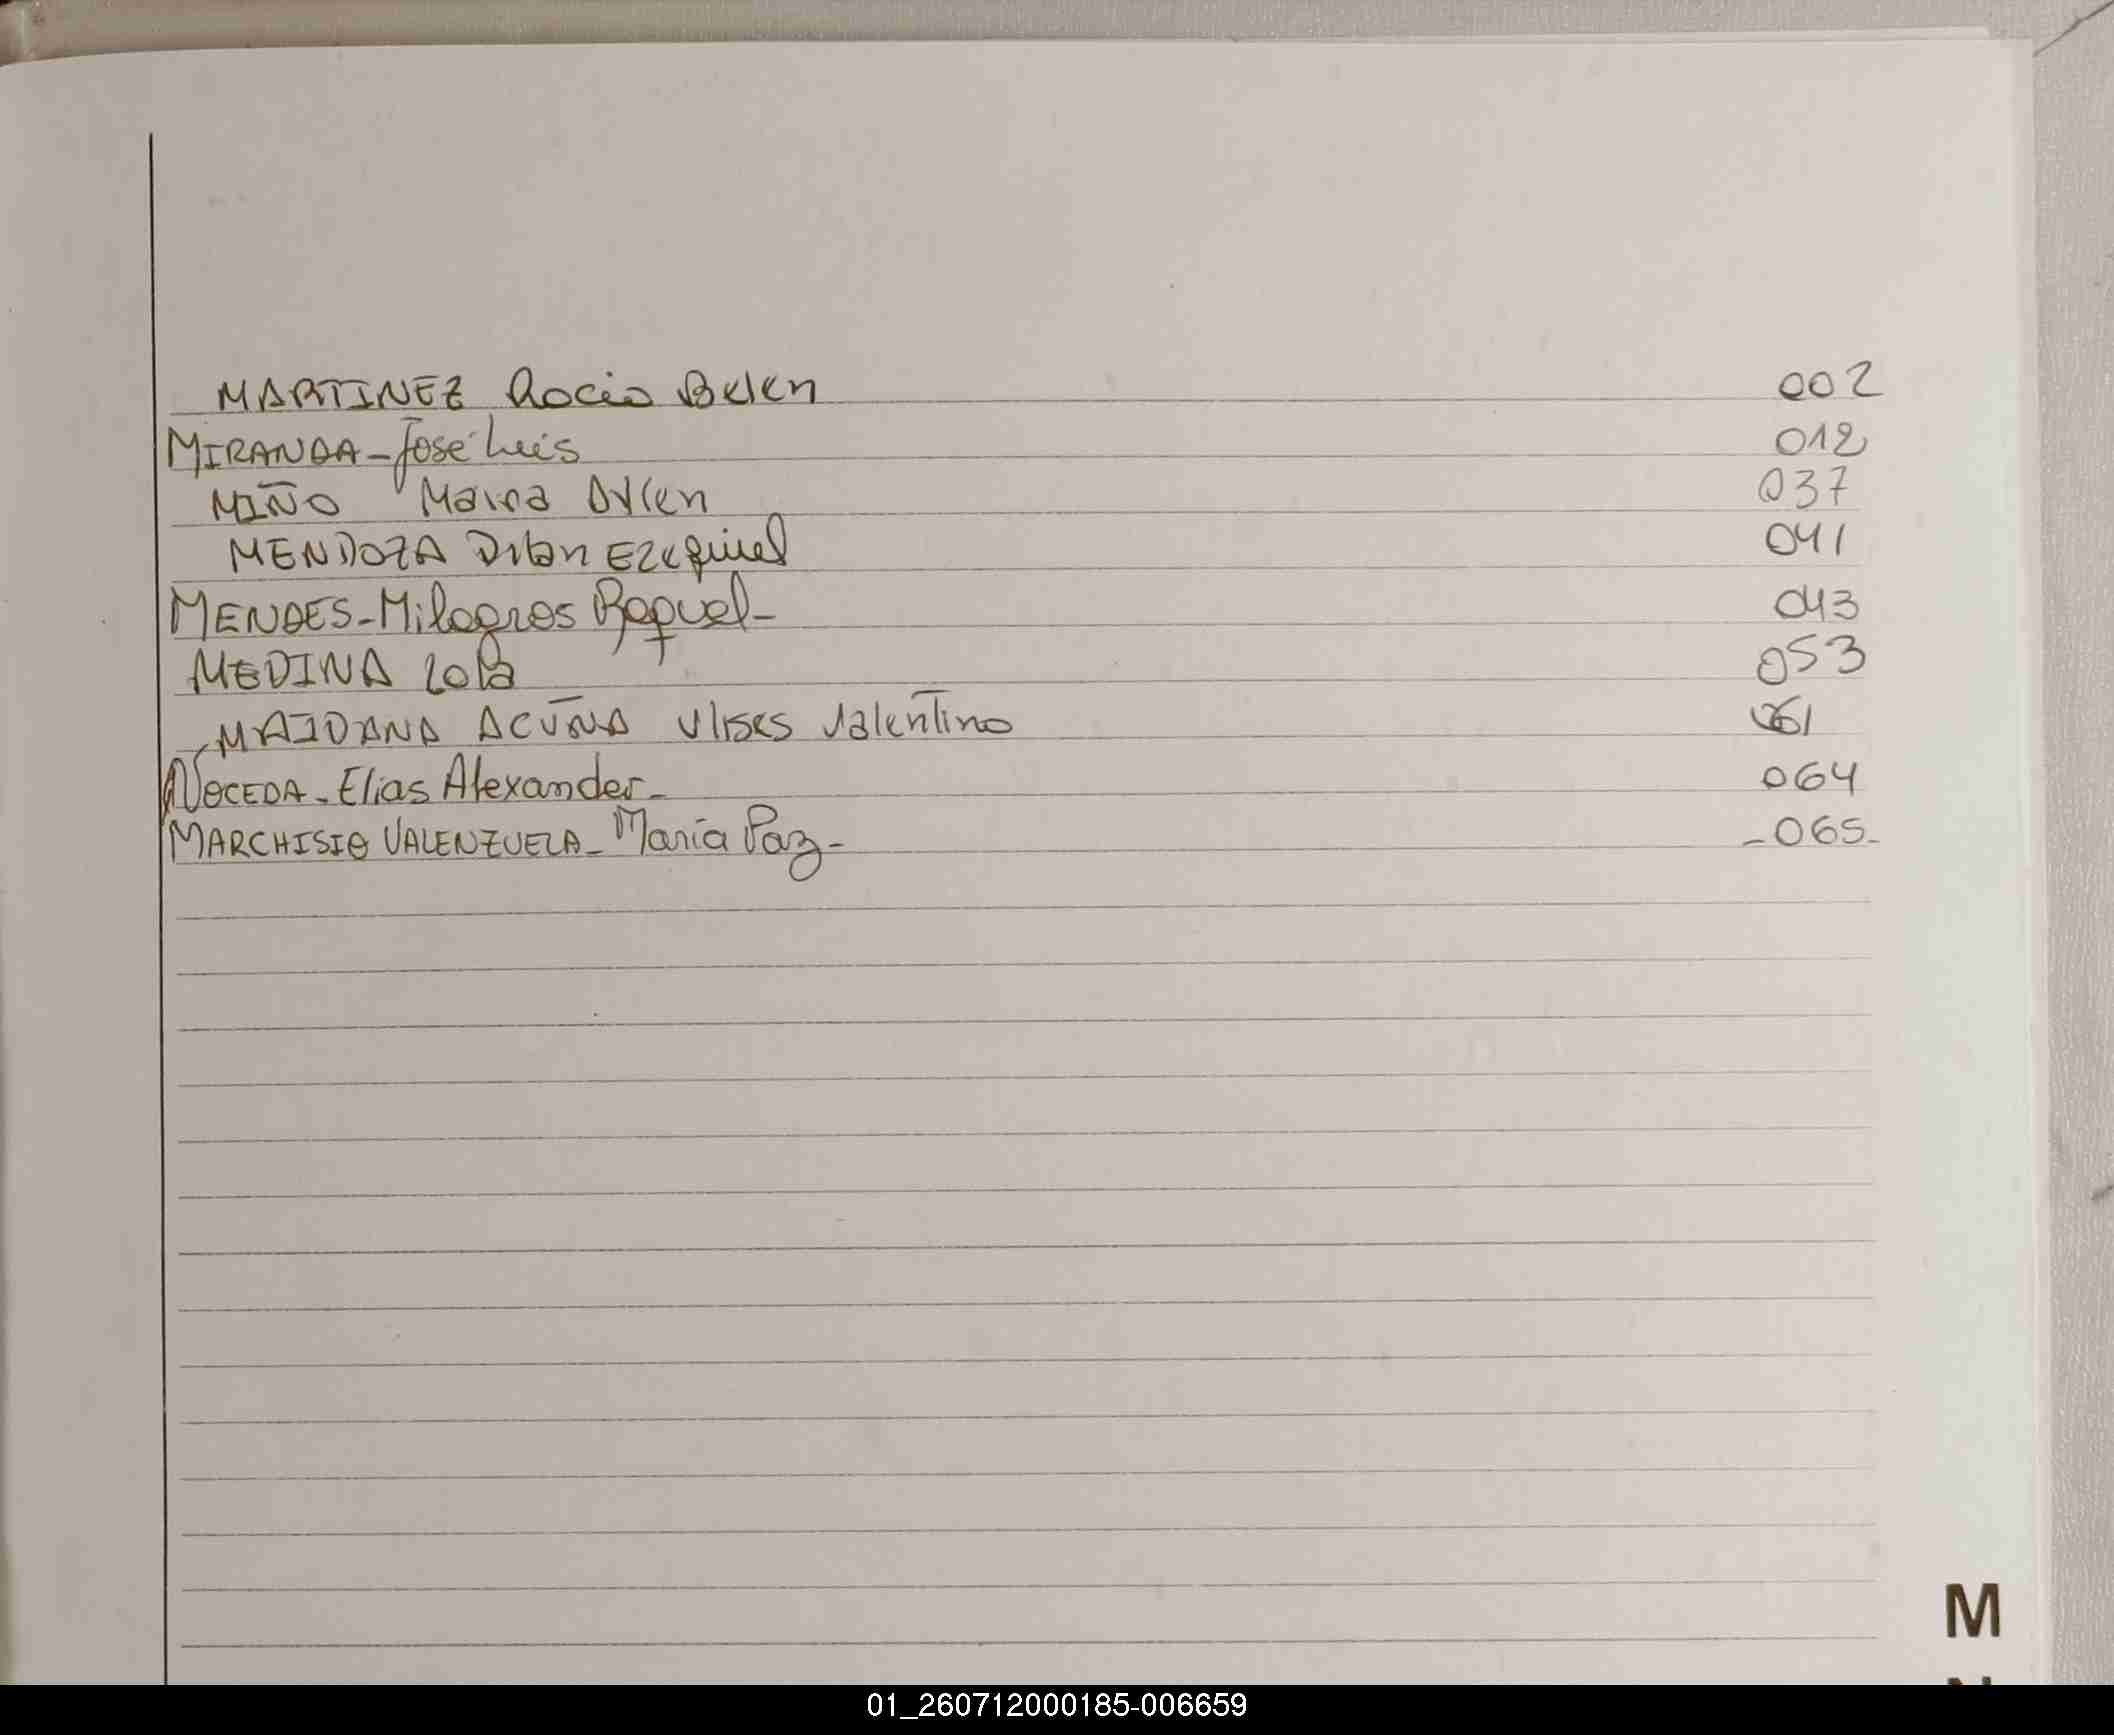 MARTINEZ Rocio Belen 002
MIRANDA - José Luis 012
MIÑO Maira Aylen 037
MENDOZA Dilan Ezequiel 041
MENDES - Milagros Raquel - 043
MEDINA Lola 053
MAIDANA ACUÑA Ulises Valentino 061
NOCEDA - Elias Alexander - 064
MARCHISIO VALENZUELA - María Paz - - 065 -
M
01_260712000185-006659